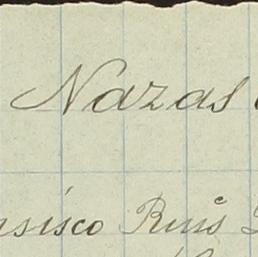 Nazas
sisco Ruis